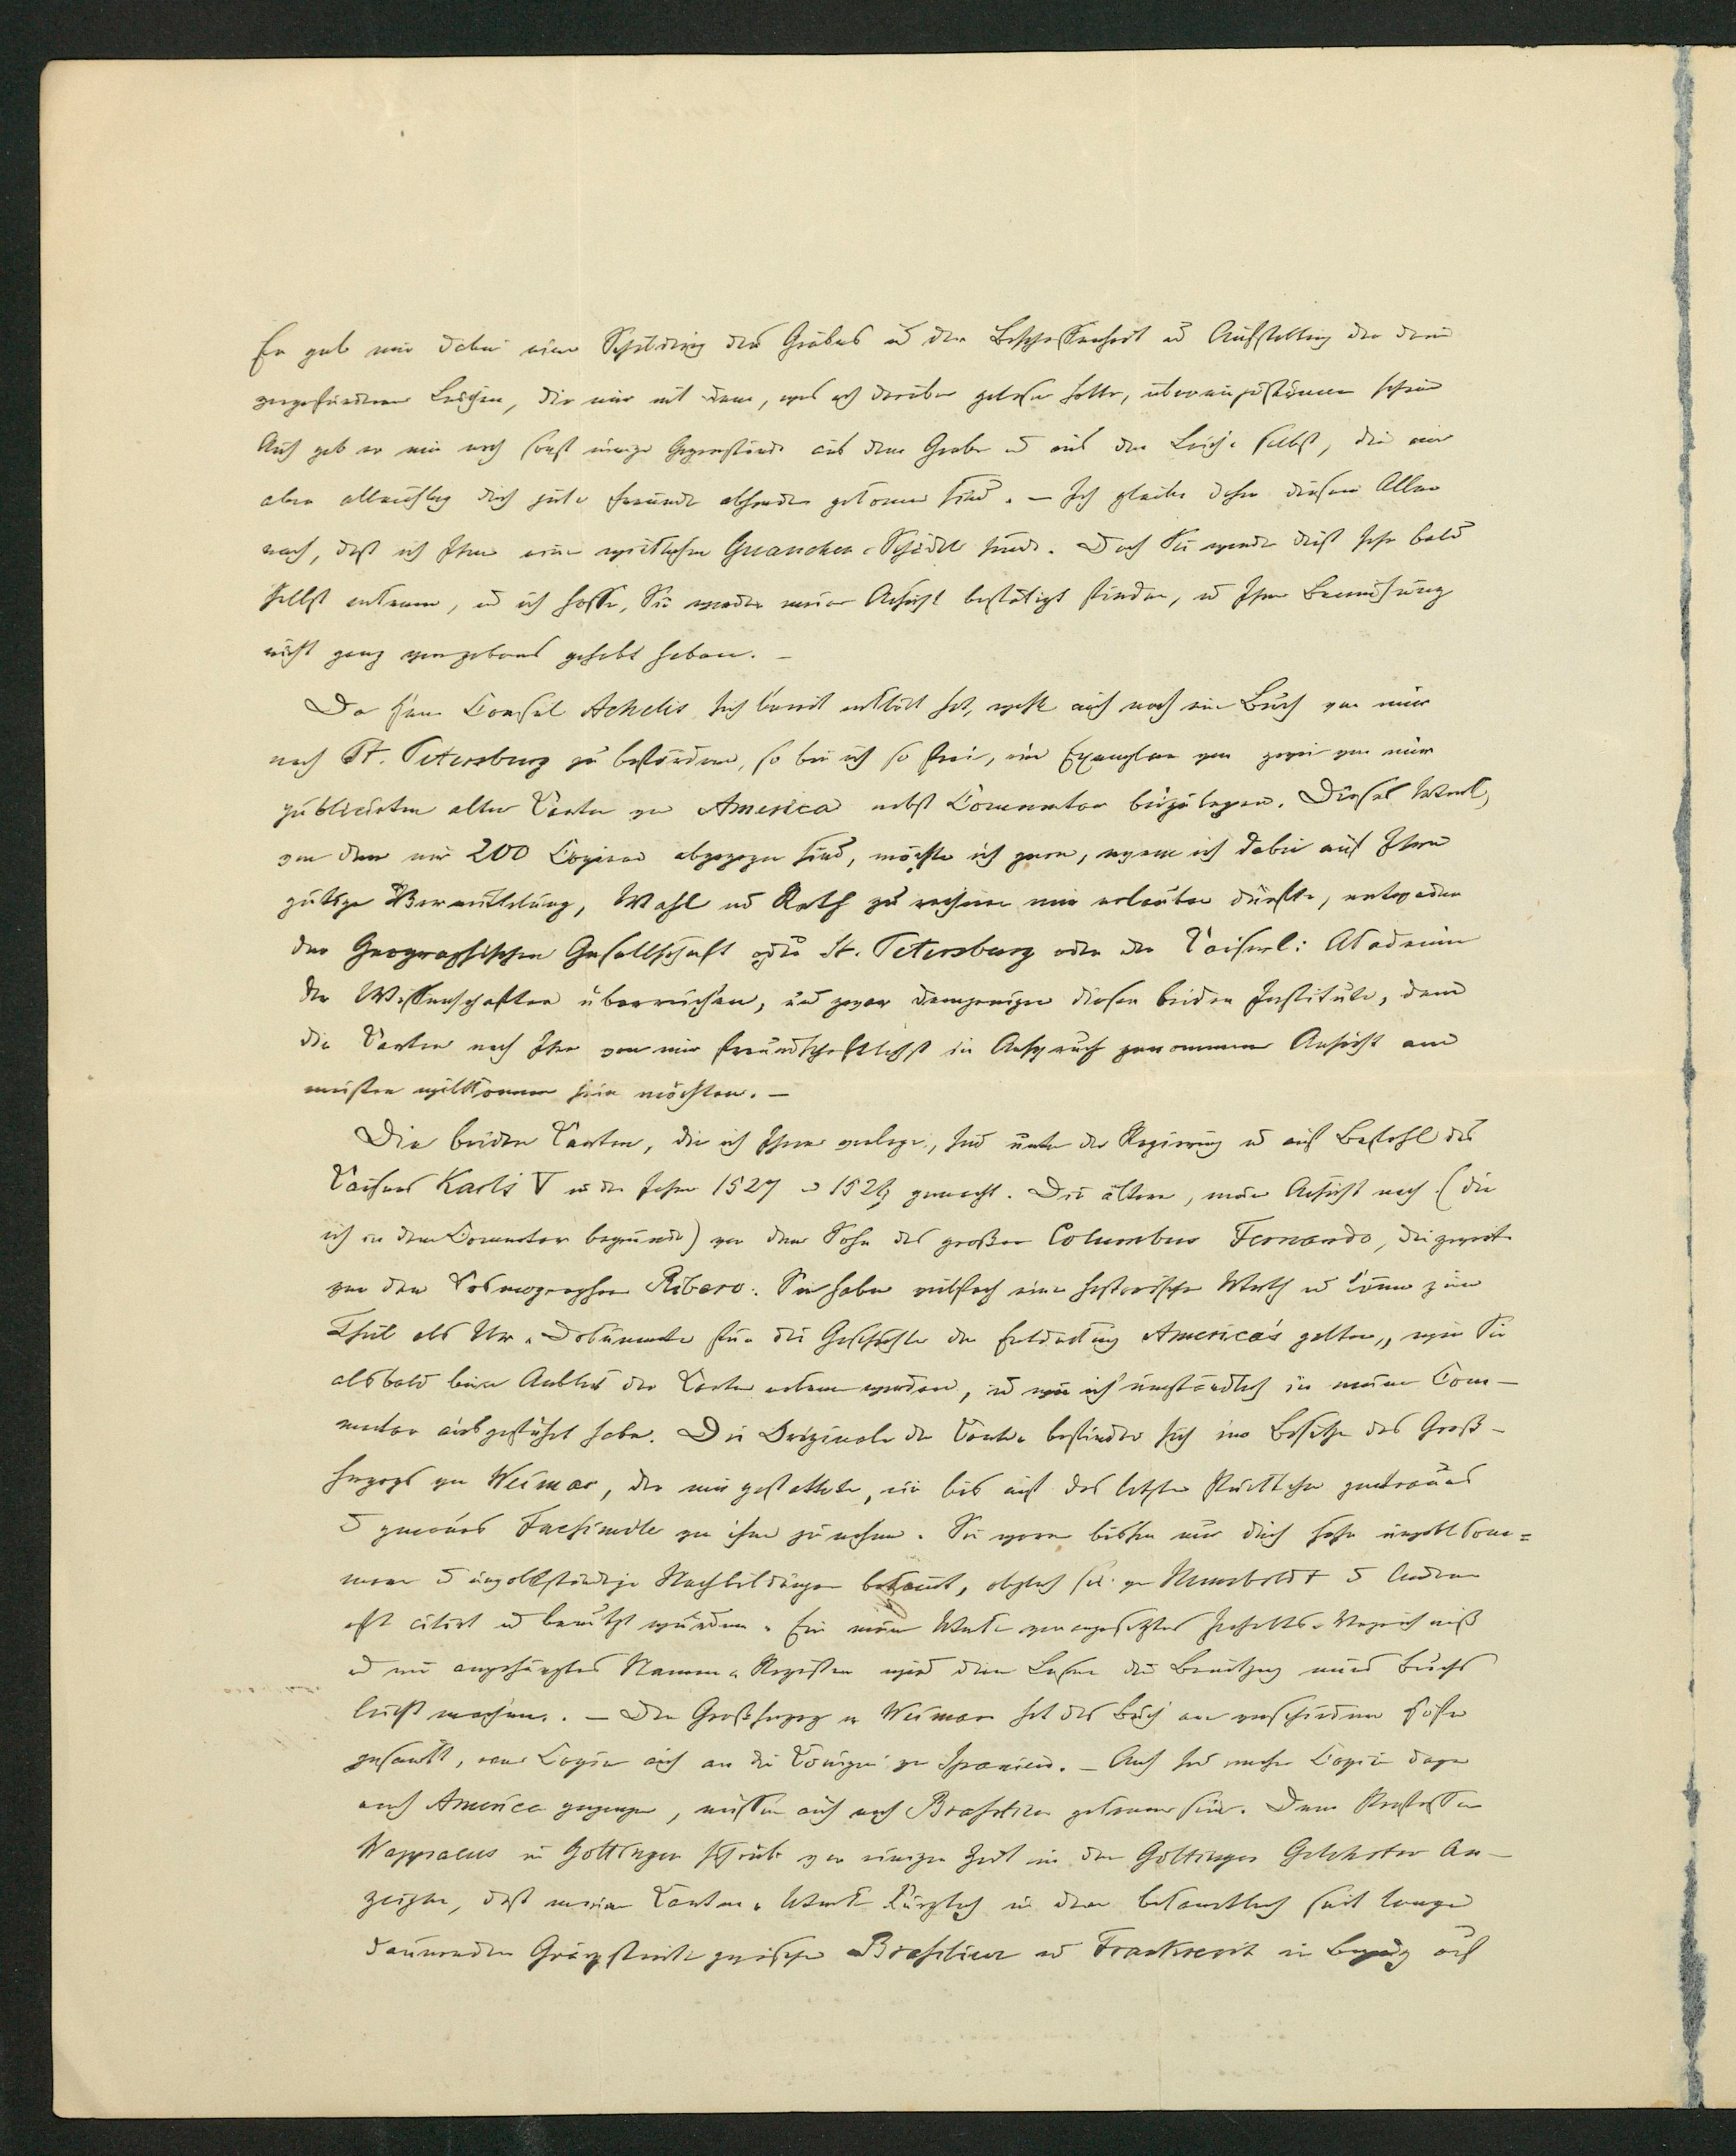 Er gab mir dabei eine Schilderung des Grabes u der Beschaffenheit u Aufstellung der darin
vorgefundenen Leichen, die mir mit dem, was ich darüber gelesen hatte, übereinzustimmen schien
Auch gab er mir noch sonst einige Gegenstände aus dem Grabe u aus der Leiche selbst, die mir
aber allmählig durch gute Freunde abhanden gekommen sind. – Ich glaube daher diesem Allen
nach, daß ich Ihnen einen wirklichen Guanchen-Schädel sende. Doch Sie werden dieß sehr bald
selbst erkennen, und ich hoffe, Sie werden meine Ansicht bestätigt finden, u Ihre Bemühung
nicht ganz vergebens gehabt haben. –
Da Herr Consul Achelis sich bereit erklärt hat, auch noch ein Buch von mir
nach St. Petersburg zu befördern, so bin ich so frei, ein Exemplar von zwei von mir
publicirten alten Karten von America nebst Commentar beizulegen. Dieses Werk,
von dem nur 200 Copieen abgezogen sind, möchte ich gern, wenn ich dabei auf Ihre
gütige Vermittelung, Wahl und Rath zu rechnen mir erlauben dürfte, entweder
der Geographischen Gesellschaft St. Petersburg oder der Kaiserl: Akademie
der Wissenschaften überreichen, und zwar demjenigen dieser beiden Institute, dem
die Karten nach Ihrer von mir freundschaftlichst in Anspruch genommenen Ansicht am
meisten willkommen sein möchten. –
Die beiden Karten, die ich Ihnen vorlege, sind unter der Regierung u auf Befehl des
Kaisers Karls V in den Jahren 1527 u 1529 gemacht. Die ältere, meiner Ansicht nach (die
ich in dem Commentar begründe) von dem Sohn des großen Columbus Fernando, die zweite
von dem Kosmographen Ribero. Sie haben vielfach einen historischen Werth u können zum
Theil als Ur-Dokumente für die Geschichte der Entdeckung America's gelten, wie Sie
alsbald beim Anblick der Karten erkennen werden, und wie ich umständlich in meinem Com-
mentar ausgeführt habe. Die Originale der Karten befinden sich im Besitze des Groß-
herzogs von Weimar, der mir gestattete, ein bis auf das letzte Pünktchen getreues
u genaues Facsimile von ihnen zu nehmen. Sie waren bisher nur durch sehr unvollkom=
mene u unvollständige Nachbildungen bekannt, obgleich sie von Humboldt u Andren
oft citirt und benutzt wurden. Ein meinem Werke vorangesetztes Inhalts-Verzeichniß
u ein angehängtes Namen-Register wird dem Leser die Benutzung meines Buchs
leicht machen. – Der Großherzog v Weimar hat das Buch an verschiedene Höfe
gesandt, eine Copie auch an die Königin von Spanien. – Auch sind mehre Copien davon
nach America gegangen, müssen auch nach Brasilien gekommen sein. Denn Professor
Wappaeus in Göttingen schrieb vor einiger Zeit in den Göttinger Gelehrten An-
zeigen, daß mein Karten-Werk kürzlich in dem bekanntlich seit lange
dauernden Gränzstreite zwischen Brasilien u Frankreich in Bezug auf